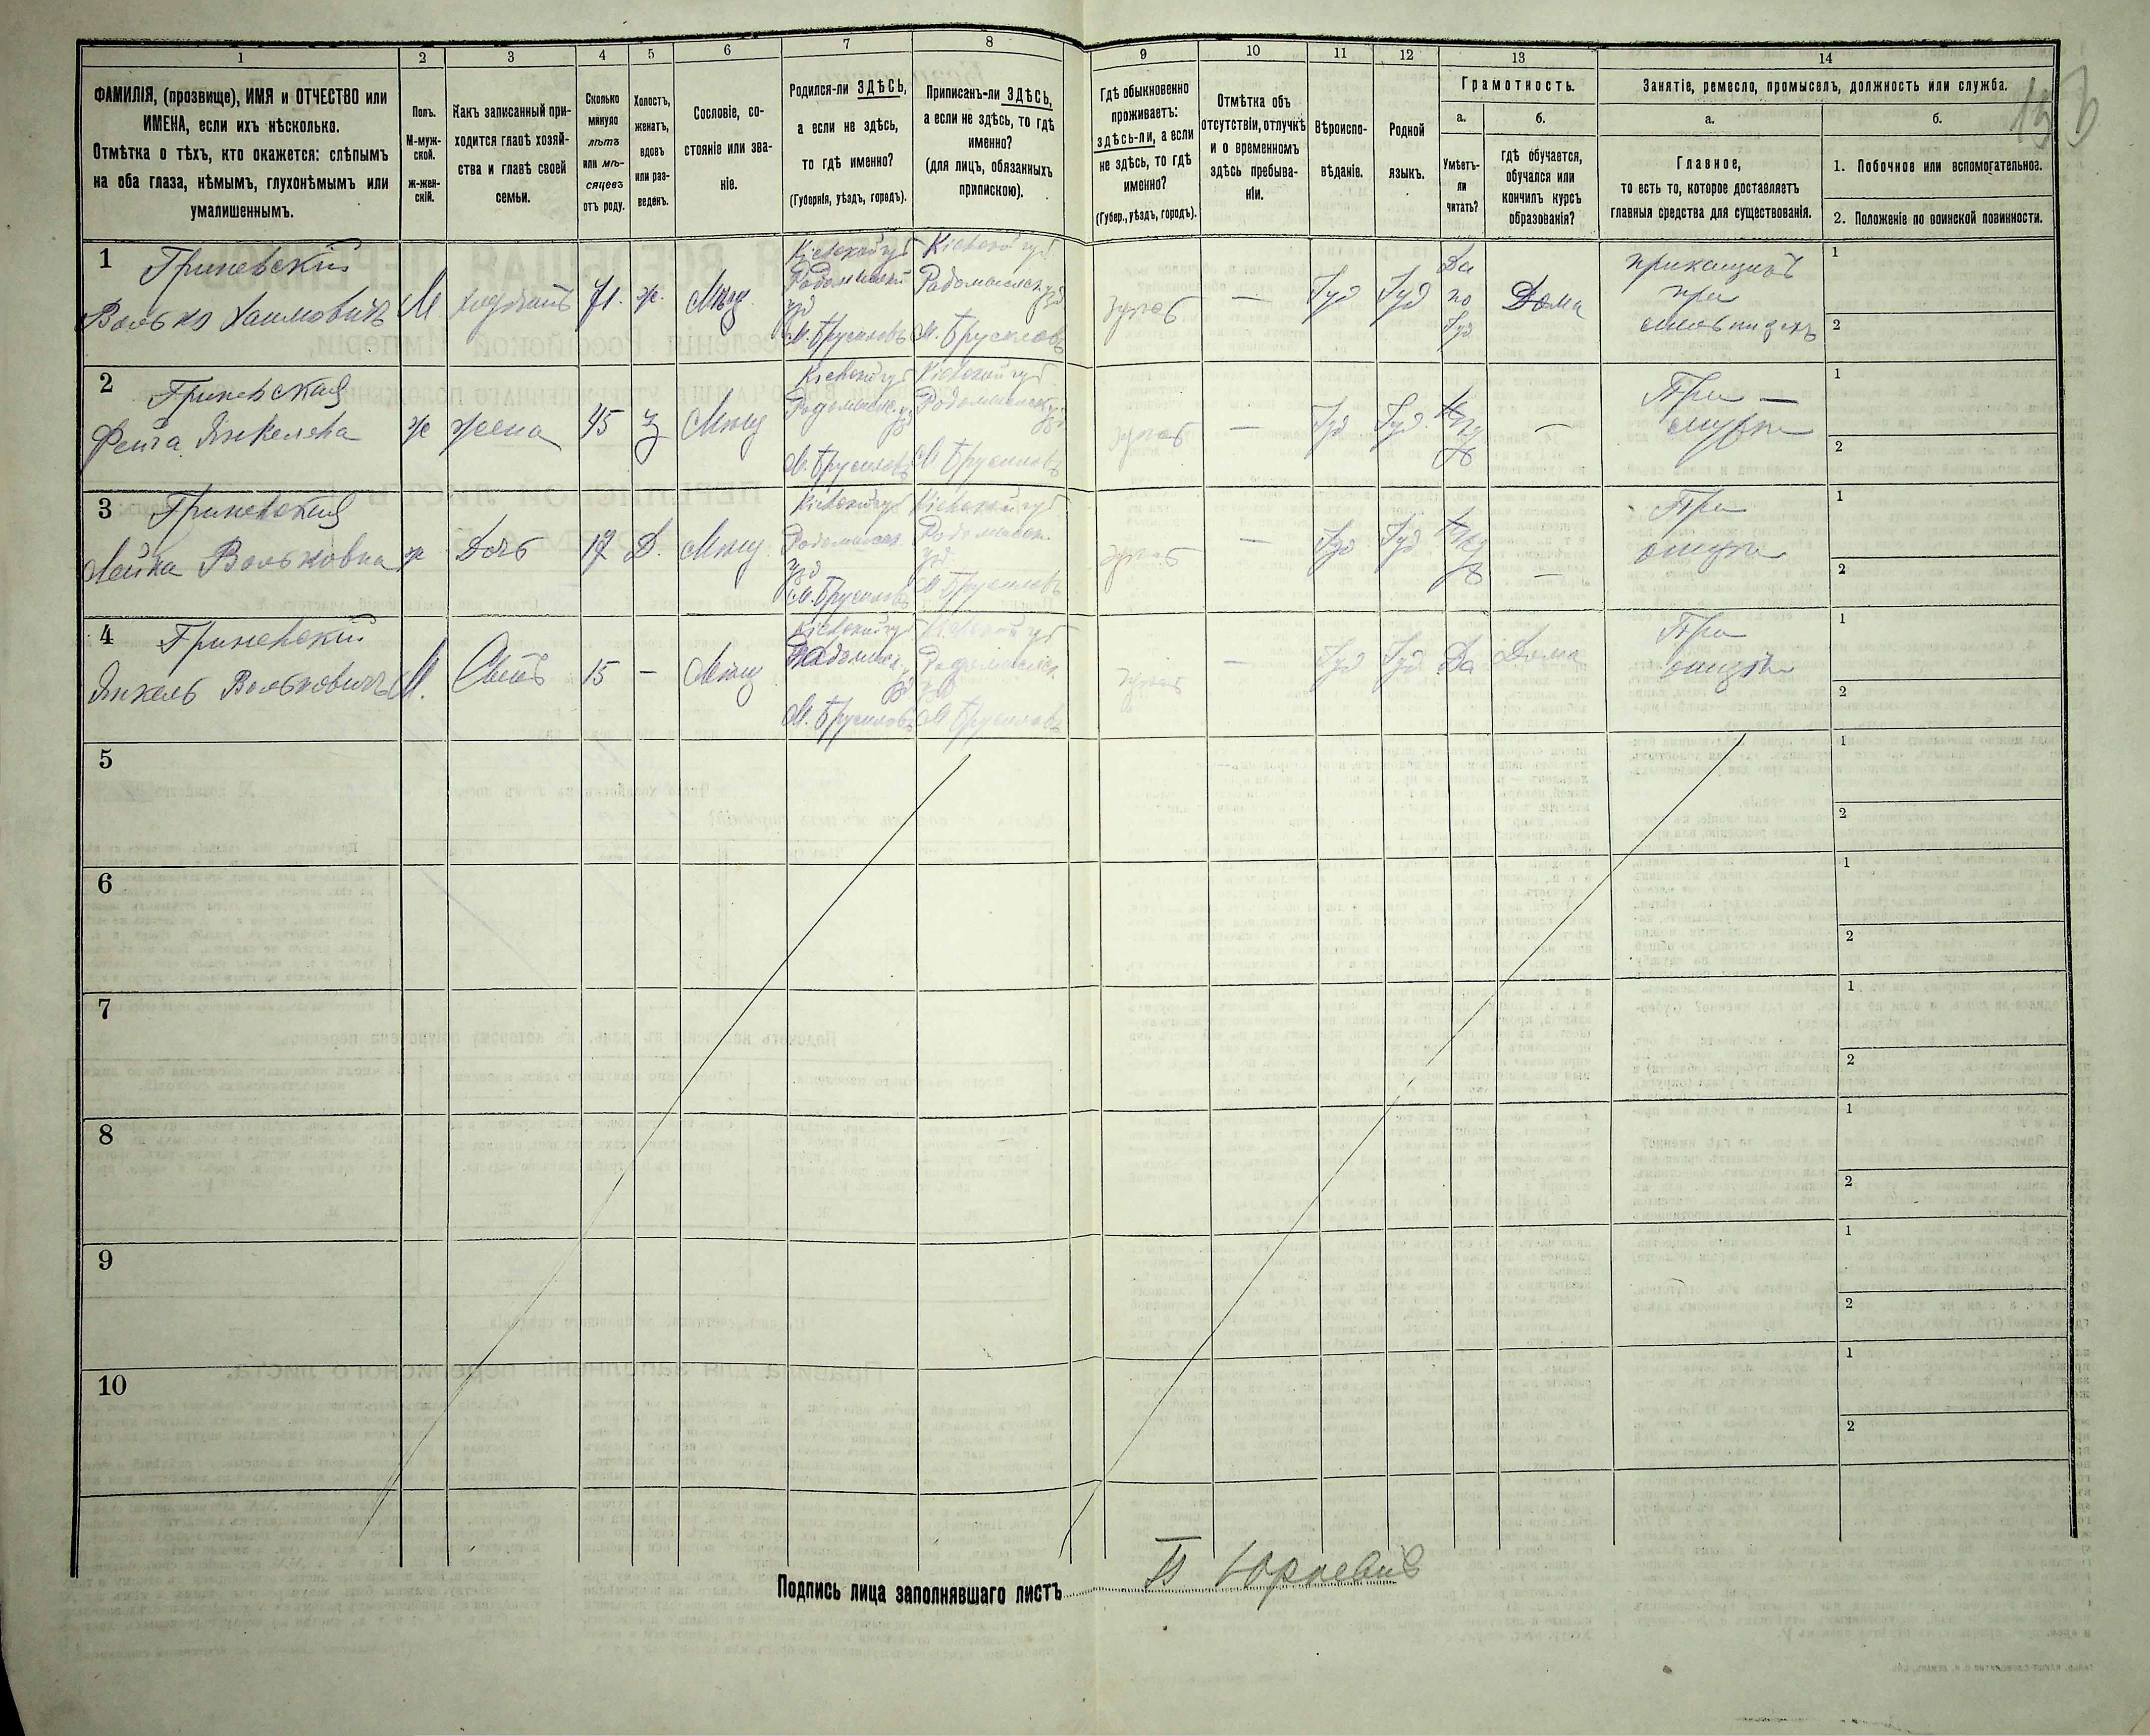 1 2 3 4 5 6 7 8 9 10 11 12 13 14
ФАМИЛІЯ, (прозвище), ИМЯ и ОТЧЕСТВО или
ИМЕНА, если ихъ нѣсколько.
Отмѣтка о тѣхъ, кто окажется: слѣпымъ
на оба глаза, нѣмымъ, глухонѣмымъ или
умалишеннымъ.
Полъ.
М-муж-
ской.
Ж-жен-
скій.
Какъ записанный при-
ходится главѣ хозяй-
ства и главѣ своей
семьи.
Сколько
минуло
лѣтъ
или мѣ-
сяцевъ
отъ роду.
Холостъ,
женатъ,
вдовъ
или раз-
веденъ.
Сословіе, со-
стояніе или зва-
ніе.
Родился-ли ЗДѢСЬ,
а если не здѣсь,
то гдѣ именно?
(Губернія, уѣздъ, городъ).
Приписанъ-ли ЗДѢСЬ,
а если не здѣсь, то гдѣ
именно?
(для лицъ, обязанныхъ
припискою).
Гдѣ обыкновенно
проживаетъ:
здѣсь-ли, а если
не здѣсь, то гдѣ
именно?
(Губер., уѣздъ, городъ).
Отмѣтка объ
отсутствіи, отлучкѣ
и о временномъ
здѣсь пребыва-
ніи.
Вѣроиспо-
вѣданіе.
Родной
языкъ.
Грамотность.
а.
Умѣетъ-
ли
читать?
б.
гдѣ обучается,
обучался или
кончилъ курсъ
образованія?
Занятіе, ремесло, промыселъ, должность или служба.
а.
Главное,
то есть то, которое доставляетъ
главныя средства для существованія.
б.
1. Побочное или вспомогательное.
2. Положеніе по воинской повинности.
1 Гриневскій
Волько Хаимовичъ
М.
хозяинъ
71.
ж.
Мѣщ
Кіевской губ
Радомысл
уѣзд
М. Брусиловъ
Кіевской губ.
Радомысльск
уѣзд
М. Брусиловъ
здѣсь
—
Іуд
Іуд
Да
по
Іуд
Дома
прикащикъ
при
1
2
2 Гриневская
Фейга Янкелева
ж
жена
45
з
Мѣщ
Кіевской губ
Радомысл. уѣзд
М. Брусиловъ
Кіевской губ
Радомысльск уѣзд
М Брусиловъ
здѣсь
—
Іуд
Іуд.
—
При —
мужѣ
1
2
3 Гриневская
Лейка Вольковна
ж
Дочь
17
Д.
Мѣщ
Кіевской губ
Радомысльск.
уѣзд
М. Брусиловъ
Кіевской губ
Радомысльск.
уѣзд
М Брусиловъ
здѣсь
—
Іуд
Іуд
—
При
отцѣ
1
2
4 Гриневскій
Янкель Вольковичъ
М.
Сынъ
15
—
Мѣщ
Кіевской губ
Радомысл. уѣзд
М. Брусиловъ
Кіевской губ
Радомысльск.
уѣзд
М Брусиловъ
здѣсь
—
Іуд
Іуд
Да
Дома
При
отцѣ
1
2
5
1
2
6
1
2
7
1
2
8
1
2
9
1
2
10
1
2
Подпись лица заполнявшаго листъ